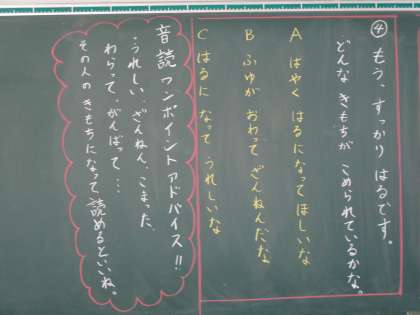 ④ もう、すっかり はるです。
どんな きもちが こめられているかな。
A はやく はるになってほしいな
B ふゆが おわって ざんねんだな
C はるに なって うれしいな
音読ワンポイントアドバイス!!
・うれしい、ざんねん、こまった、
わらって、がんばって…
その人の きもちになって読めるといいね。